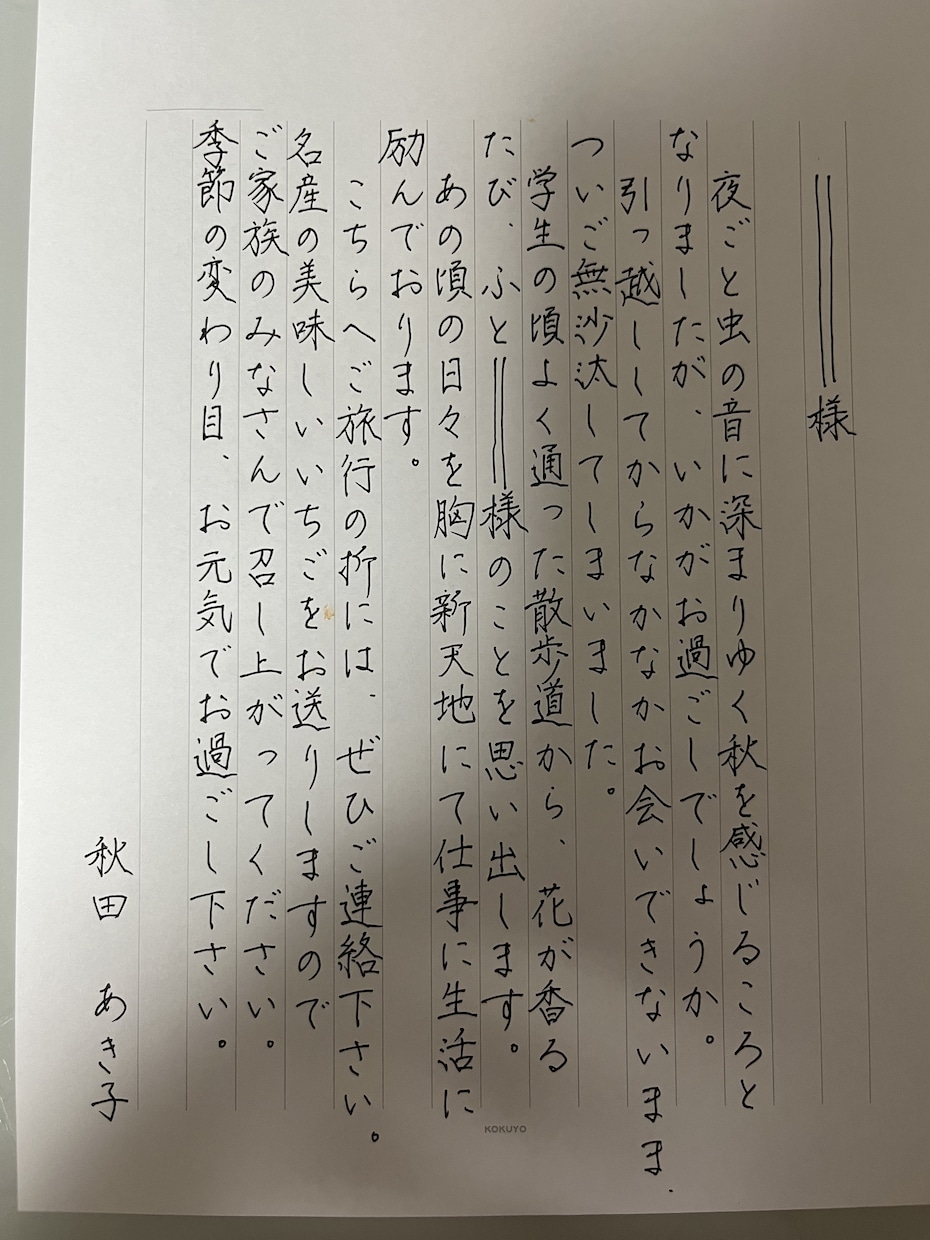 様
夜ごと虫の音に深まりゆく秋を感じるころと
なりましたが、いかがお過ごしでしょうか。
引っ越ししてからなかなかお会いできないまま、
ついご無沙汰してしまいました。
学生の頃よく通った散歩道から、花が香る
たび、ふと様のことを思い出します。
あの頃の日々を胸に新天地にて仕事に生活に
励んでおります。
こちらへご旅行の折には、ぜひご連絡下さい。
名産の美味しいいちごをお送りしますので
ご家族のみなさんで召し上がってください。
季節の変わり目、お元気でお過ごし下さい。
秋田 あき子
KOKUYO